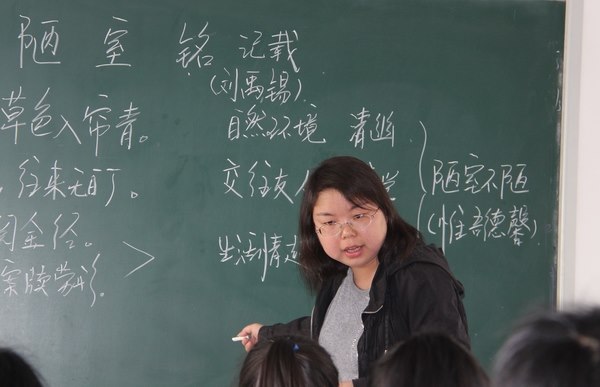 陋室铭 记载
(刘禹锡)
草色入帘青。 自然环境 清幽
往来无白丁。 交往友 陋室不陋
阅金经。 (惟吾德馨)
生活情
案牍劳形。